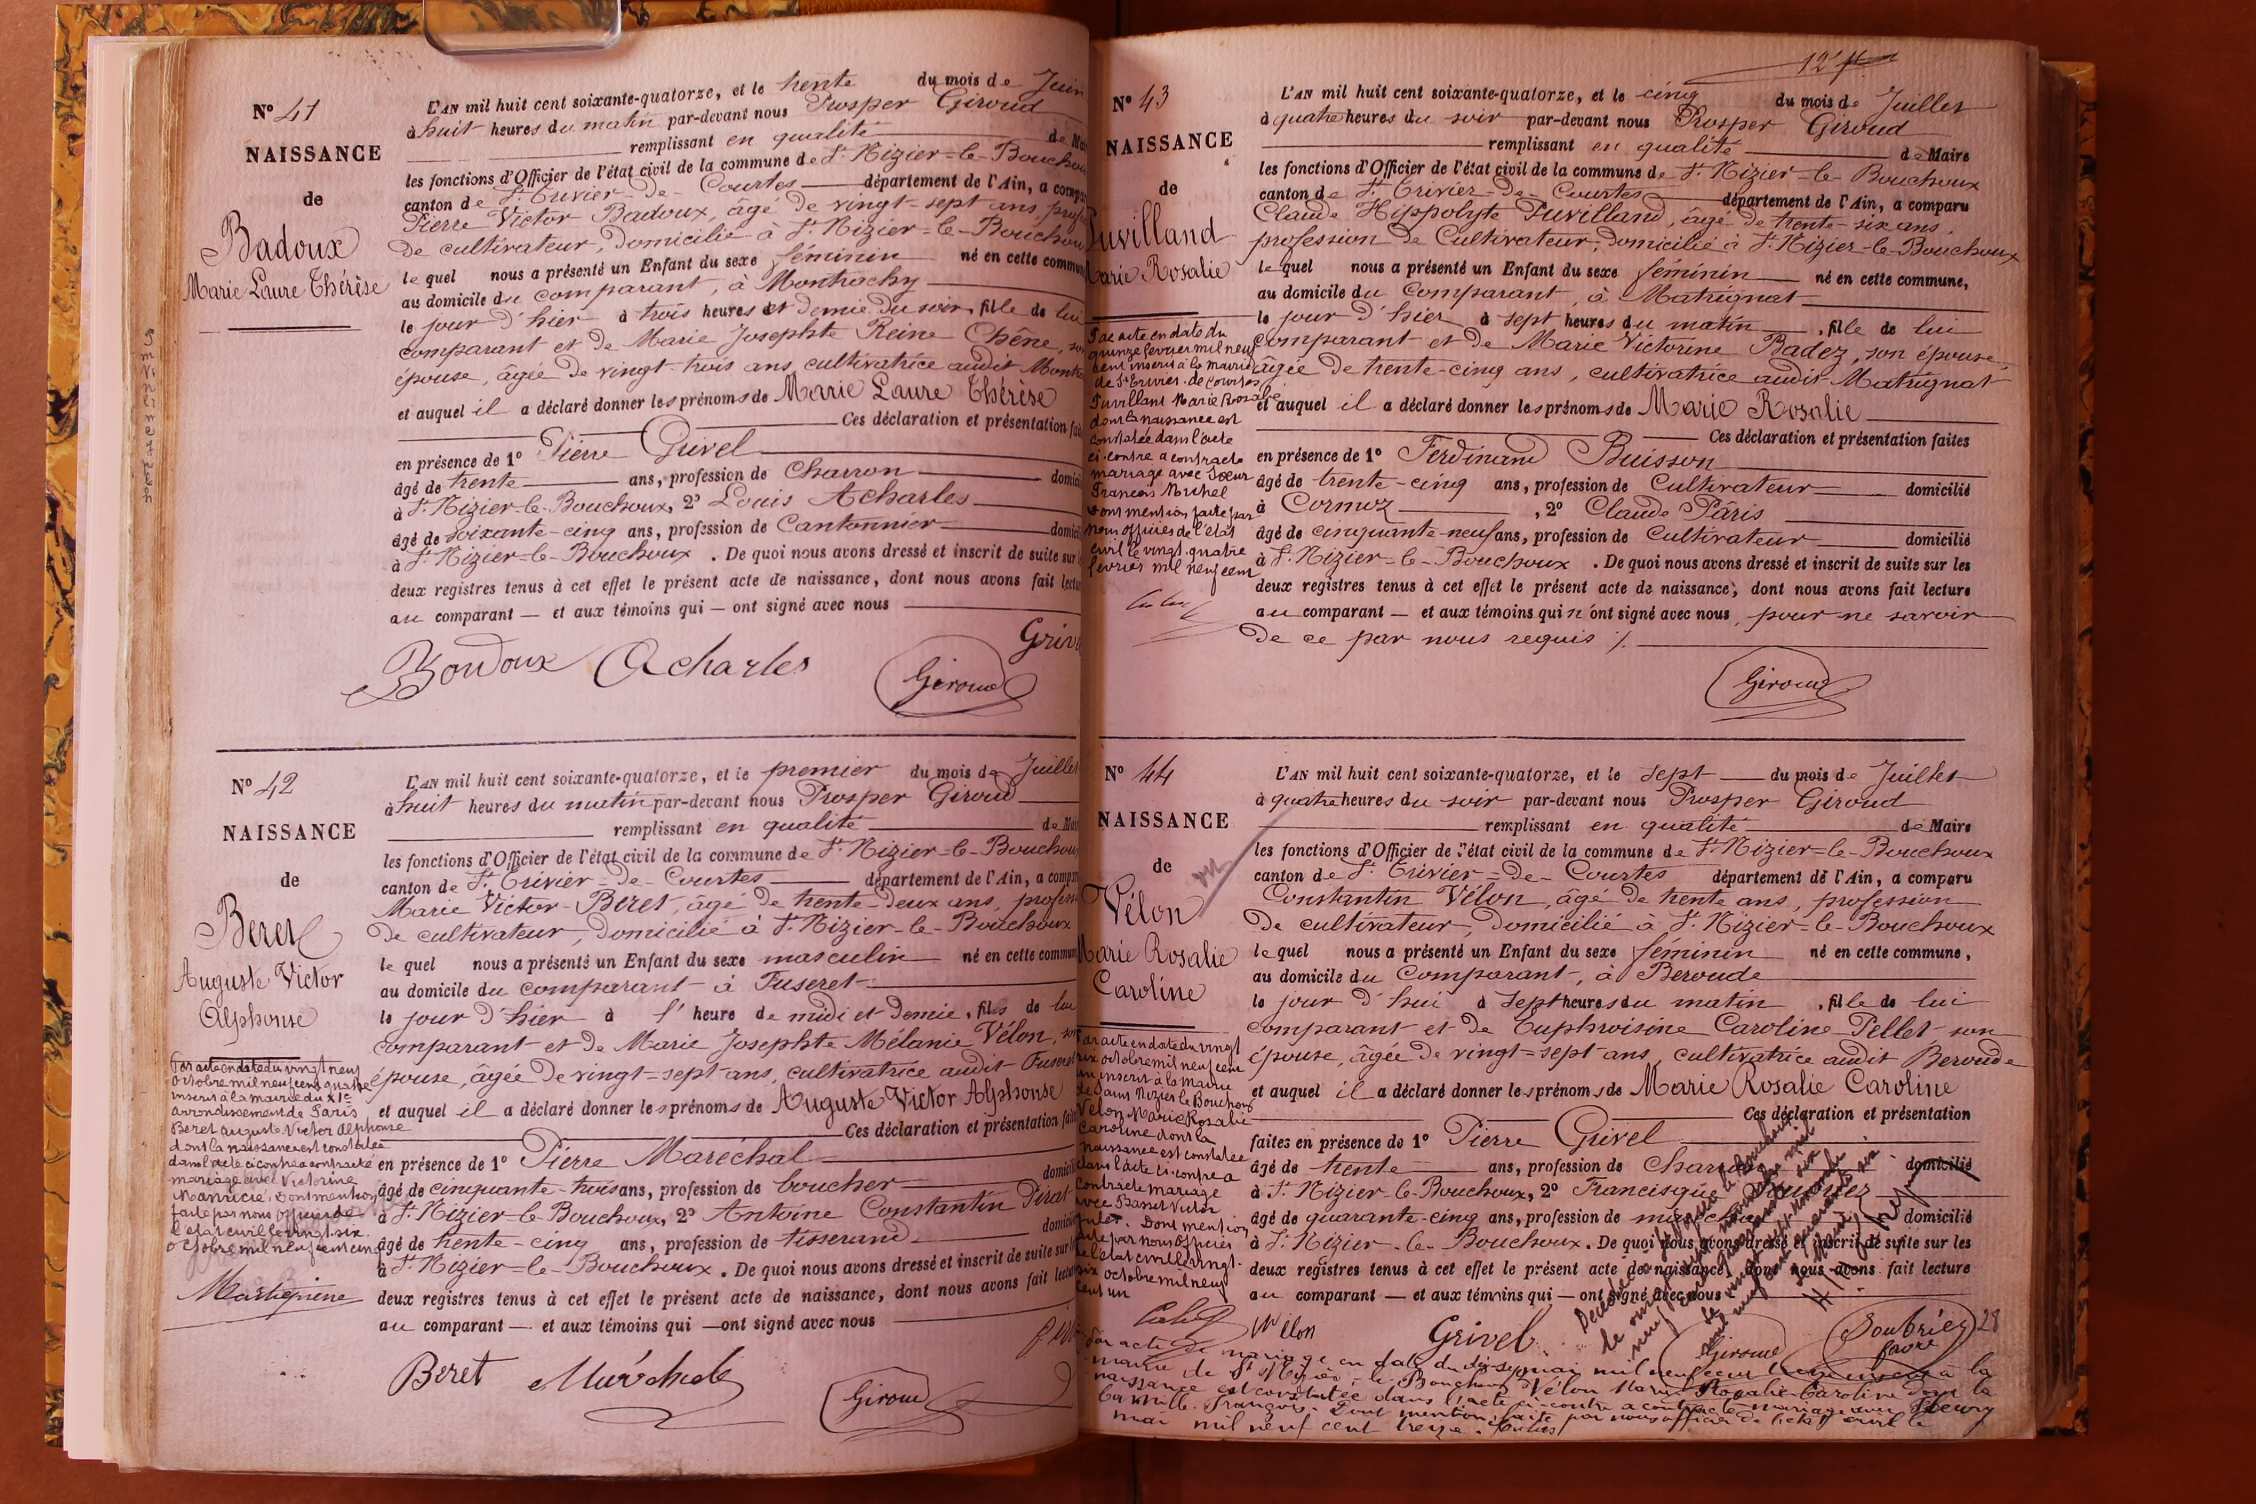 N° 41
NAISSANCE
de
Badoux
Marie Laure Thérèse
L'AN mil huit cent soixante-quatorze, et le trente du mois de Juin
à huit heures du matin par-devant nous Prosper Giroud
remplissant en qualité de Mai
les fonctions d'Officier de l'état civil de la commune de St Nizier-le-Bouchou
canton de St Trivier-de-Courtes département de l'Ain, a compa
Pierre Victor Badoux, âgé de vingt-sept ans, profes
de cultivateur, domicilié à St Nizier-le-Bouchou
le quel nous a présenté un Enfant du sexe féminin né en cette commun
au domicile du comparant, à Montrachy
le jour d'hier à trois heures et demie du soir, fille de lui
comparant et de Marie Josephte Reine Chêne, son
épouse, âgée de vingt-trois ans, cultivatrice audit Montra
et auquel il a déclaré donner les prénoms de Marie Laure Thérèse
Ces déclaration et présentation fai
en présence de 1° Pierre Grivel
âgé de trente ans, profession de Charron domici
à St Nizier-le-Bouchoux, 2° Louis Acharles
âgé de soixante-cinq ans, profession de Cantonnier domici
à St Nizier-le-Bouchoux. De quoi nous avons dressé et inscrit de suite sur l
deux registres tenus à cet effet le présent acte de naissance, dont nous avons fait lectu
au comparant — et aux témoins qui — ont signé avec nous
Griv
Badoux Acharles Giroud
N° 42
NAISSANCE
de
Beret
Auguste Victor
Alphonse
Par acte en date du vingt neuf
octobre mil neuf cent quatre
inscrit à la mairie du XIe
arrondissement de Paris
Beret Auguste Victor Alphonse
dont la naissance est constatée
dans l'acte ci contre a contracté
mariage avec Victorine
dont mention
faite par nous officier de
l'état civil le vingt six
octobre mil neuf cent cinq
L'AN mil huit cent soixante-quatorze, et le premier du mois de Juillet
à huit heures du matin par-devant nous Prosper Giroud
remplissant en qualité de Mai
les fonctions d'Officier de l'état civil de la commune de St Nizier-le-Bouchou
canton de St Trivier-de-Courtes département de l'Ain, a compa
Marie Victor Beret, âgé de trente-deux ans, profess
de cultivateur, domicilié à St Nizier-le-Bouchoux
le quel nous a présenté un Enfant du sexe masculin né en cette commun
au domicile du comparant à Fuseret
le jour d'hier à l'heure de midi et demie, fils de lui
comparant et de Marie Josephte Mélanie Vélon, son
épouse, âgée de vingt-sept ans, cultivatrice audit Fuseret
et auquel il a déclaré donner les prénoms de Auguste Victor Alphonse
Ces déclaration et présentation fait
en présence de 1° Pierre Maréchal
âgé de cinquante-trois ans, profession de boucher domicili
à St Nizier-le-Bouchoux, 2° Antoine Constantin Pirat
âgé de trente-cinq ans, profession de tisserand domicili
à St Nizier-le-Bouchoux. De quoi nous avons dressé et inscrit de suite sur l
deux registres tenus à cet effet le présent acte de naissance, dont nous avons fait lectu
au comparant — et aux témoins qui — ont signé avec nous
Beret Maréchal Giroud
N° 43
NAISSANCE
de
Puvilland
Marie Rosalie
Par acte en date du
quinze février mil neuf
cent inscrit à la mairie
de St Trivier-de-Courtes
Puvilland Marie Rosalie
dont la naissance est
constatée dans l'acte
ci-contre a contracté
mariage avec
François Michel
dont mention faite par
nous officier de l'état
civil le vingt-quatre
février mil neuf cent
L'AN mil huit cent soixante-quatorze, et le cinq du mois de Juillet
à quatre heures du soir par-devant nous Prosper Giroud
remplissant en qualité de Maire
les fonctions d'Officier de l'état civil de la commune de St Nizier-le-Bouchoux
canton de St Trivier-de-Courtes département de l'Ain, a comparu
Claude Hippolyte Puvilland, âgé de trente-six ans,
profession de Cultivateur, domicilié à St Nizier-le-Bouchoux
le quel nous a présenté un Enfant du sexe féminin né en cette commune,
au domicile du comparant, à Matrignat
le jour d'hier à sept heures du matin, fille de lui
comparant et de Marie Victorine Badez, son épouse
âgée de trente-cinq ans, cultivatrice audit Matrignat
et auquel il a déclaré donner les prénoms de Marie Rosalie
Ces déclaration et présentation faites
en présence de 1° Ferdinand Buisson
âgé de trente-cinq ans, profession de Cultivateur domicilié
à Cormoz, 2° Claude Pâris
âgé de cinquante-neuf ans, profession de Cultivateur domicilié
à St Nizier-le-Bouchoux. De quoi nous avons dressé et inscrit de suite sur les
deux registres tenus à cet effet le présent acte de naissance, dont nous avons fait lecture
au comparant — et aux témoins qui n'ont signé avec nous, pour ne savoir
de ce par nous requis ./.
Giroud
N° 44
NAISSANCE
de
Vélon
Marie Rosalie
Caroline
Par acte en date du vingt
six octobre mil neuf cent
un inscrit à la mairie
de Saint Nizier le Bouchoux
Velon Marie Rosalie
Caroline dont la
naissance est constatée
dans l'acte ci-contre a
contracté mariage
avec Basset Victor
Jules. Dont mention
faite par nous officier
de l'état civil le vingt-
six octobre mil neuf
cent un
L'AN mil huit cent soixante-quatorze, et le sept du mois de Juillet
à quatre heures du soir par-devant nous Prosper Giroud
remplissant en qualité de Maire
les fonctions d'Officier de l'état civil de la commune de St Nizier-le-Bouchoux
canton de St Trivier-de-Courtes département de l'Ain, a comparu
Constantin Vélon, âgé de trente ans, profession
de cultivateur, domicilié à St Nizier-le-Bouchoux
le quel nous a présenté un Enfant du sexe féminin né en cette commune,
au domicile du comparant, à Beroude
le jour d'hui à sept heures du matin, fille de lui
comparant et de Euphroisine Caroline Pellet son
épouse, âgée de vingt-sept ans, cultivatrice audit Beroude
et auquel il a déclaré donner les prénoms de Marie Rosalie Caroline
Ces déclaration et présentation
faites en présence de 1° Pierre Grivel
âgé de trente ans, profession de Charron domicilié
à St Nizier-le-Bouchoux, 2° Francisque
âgé de quarante-cinq ans, profession de domicilié
à St Nizier-le-Bouchoux. De quoi nous avons dressé et inscrit de suite sur les
deux registres tenus à cet effet le présent acte de naissance, dont nous avons fait lecture
au comparant — et aux témoins qui — ont signé avec nous
Vellon Grivel Giroud
Par acte de mariage en date du mai mil neuf cent treize inscrit à la
mairie de St Nizier-le-Bouchoux Vélon Marie Rosalie Caroline dont la
naissance est constatée dans l'acte ci-contre a contracté mariage avec Fleury
Camille François. Dont mention faite par nous officier de l'état civil le
mai mil neuf cent treize.